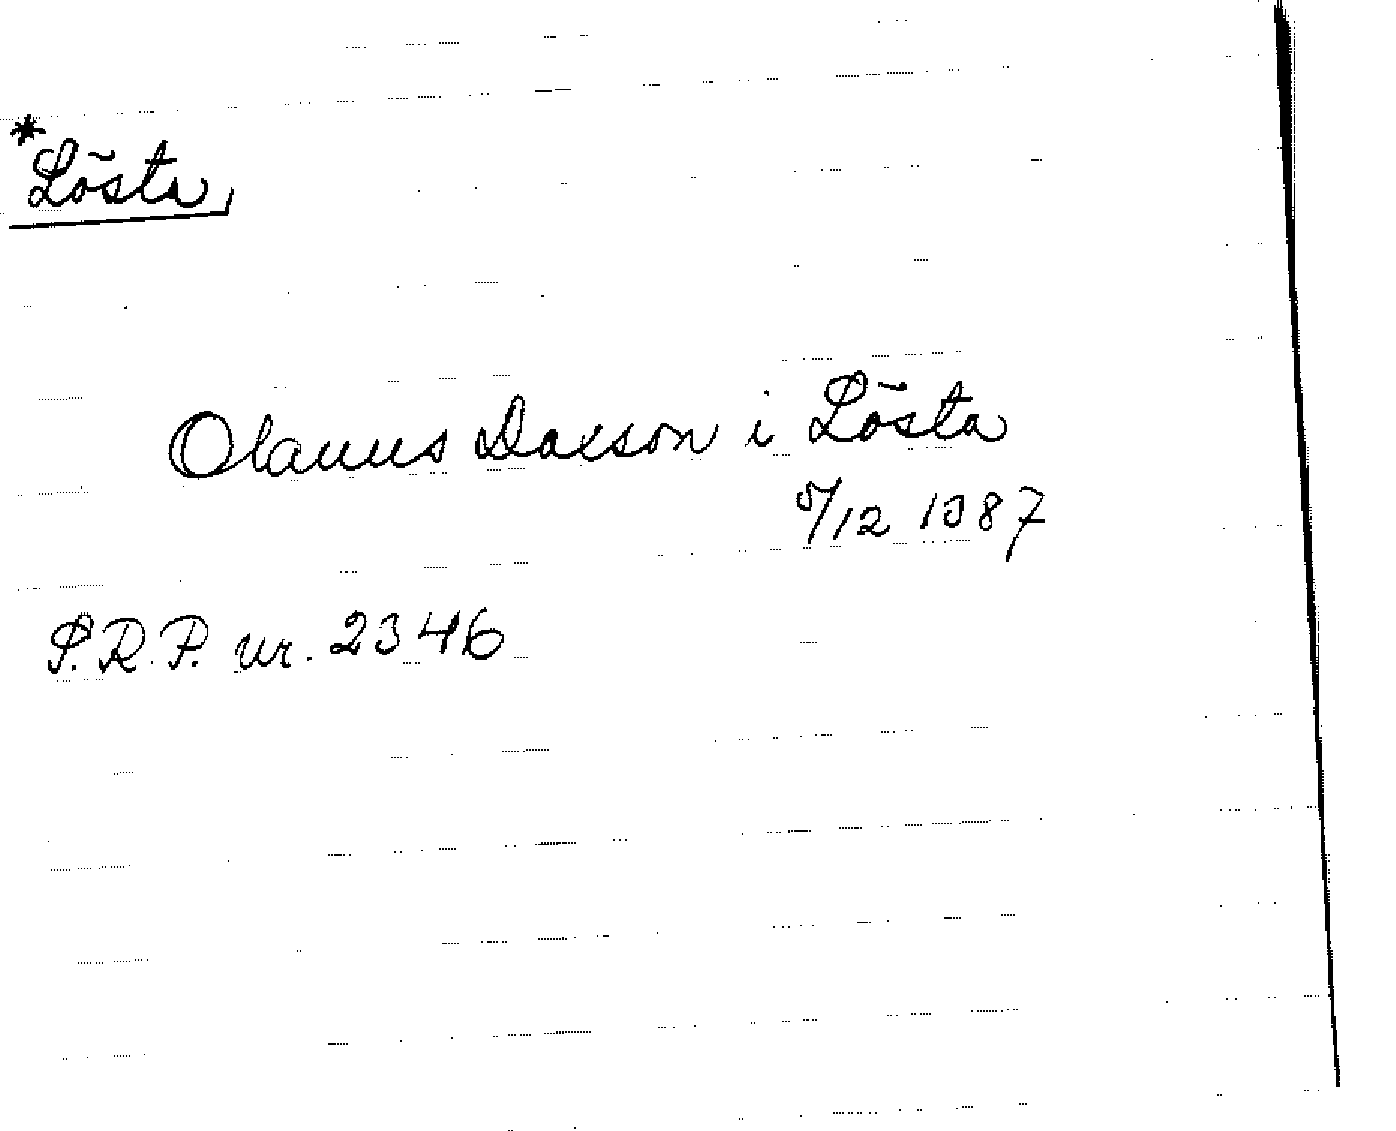 *Lösta,
Olauus Daxson i Lösta
5/12 1387
S.R.P. nr. 2346